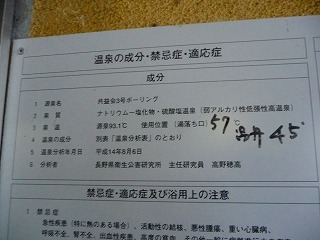 温泉の成分・禁忌症・適応症
成分
1 源泉名 共益会3号ボーリング
2 泉質 ナトリウムー塩化物・硫酸塩温泉（弱アルカリ性低張性高温泉）
3 泉温 源泉93.1℃ 使用位置（湯落ち口）57℃ 45°
4 温泉の成分 別表「温泉分析表」のとおり
5 温泉分析年月日 平成14年8月6日
6 分析者 長野県衛生公害研究所 主任研究員 高野穂高
禁忌症・適応症及び浴用上の注意
1 禁忌症
急性疾患（特に熱のある場合）、活動性の結核、悪性腫瘍、重い心臓病、
呼吸不全、腎不全、出血性疾患、高度の貧血、その他一般に